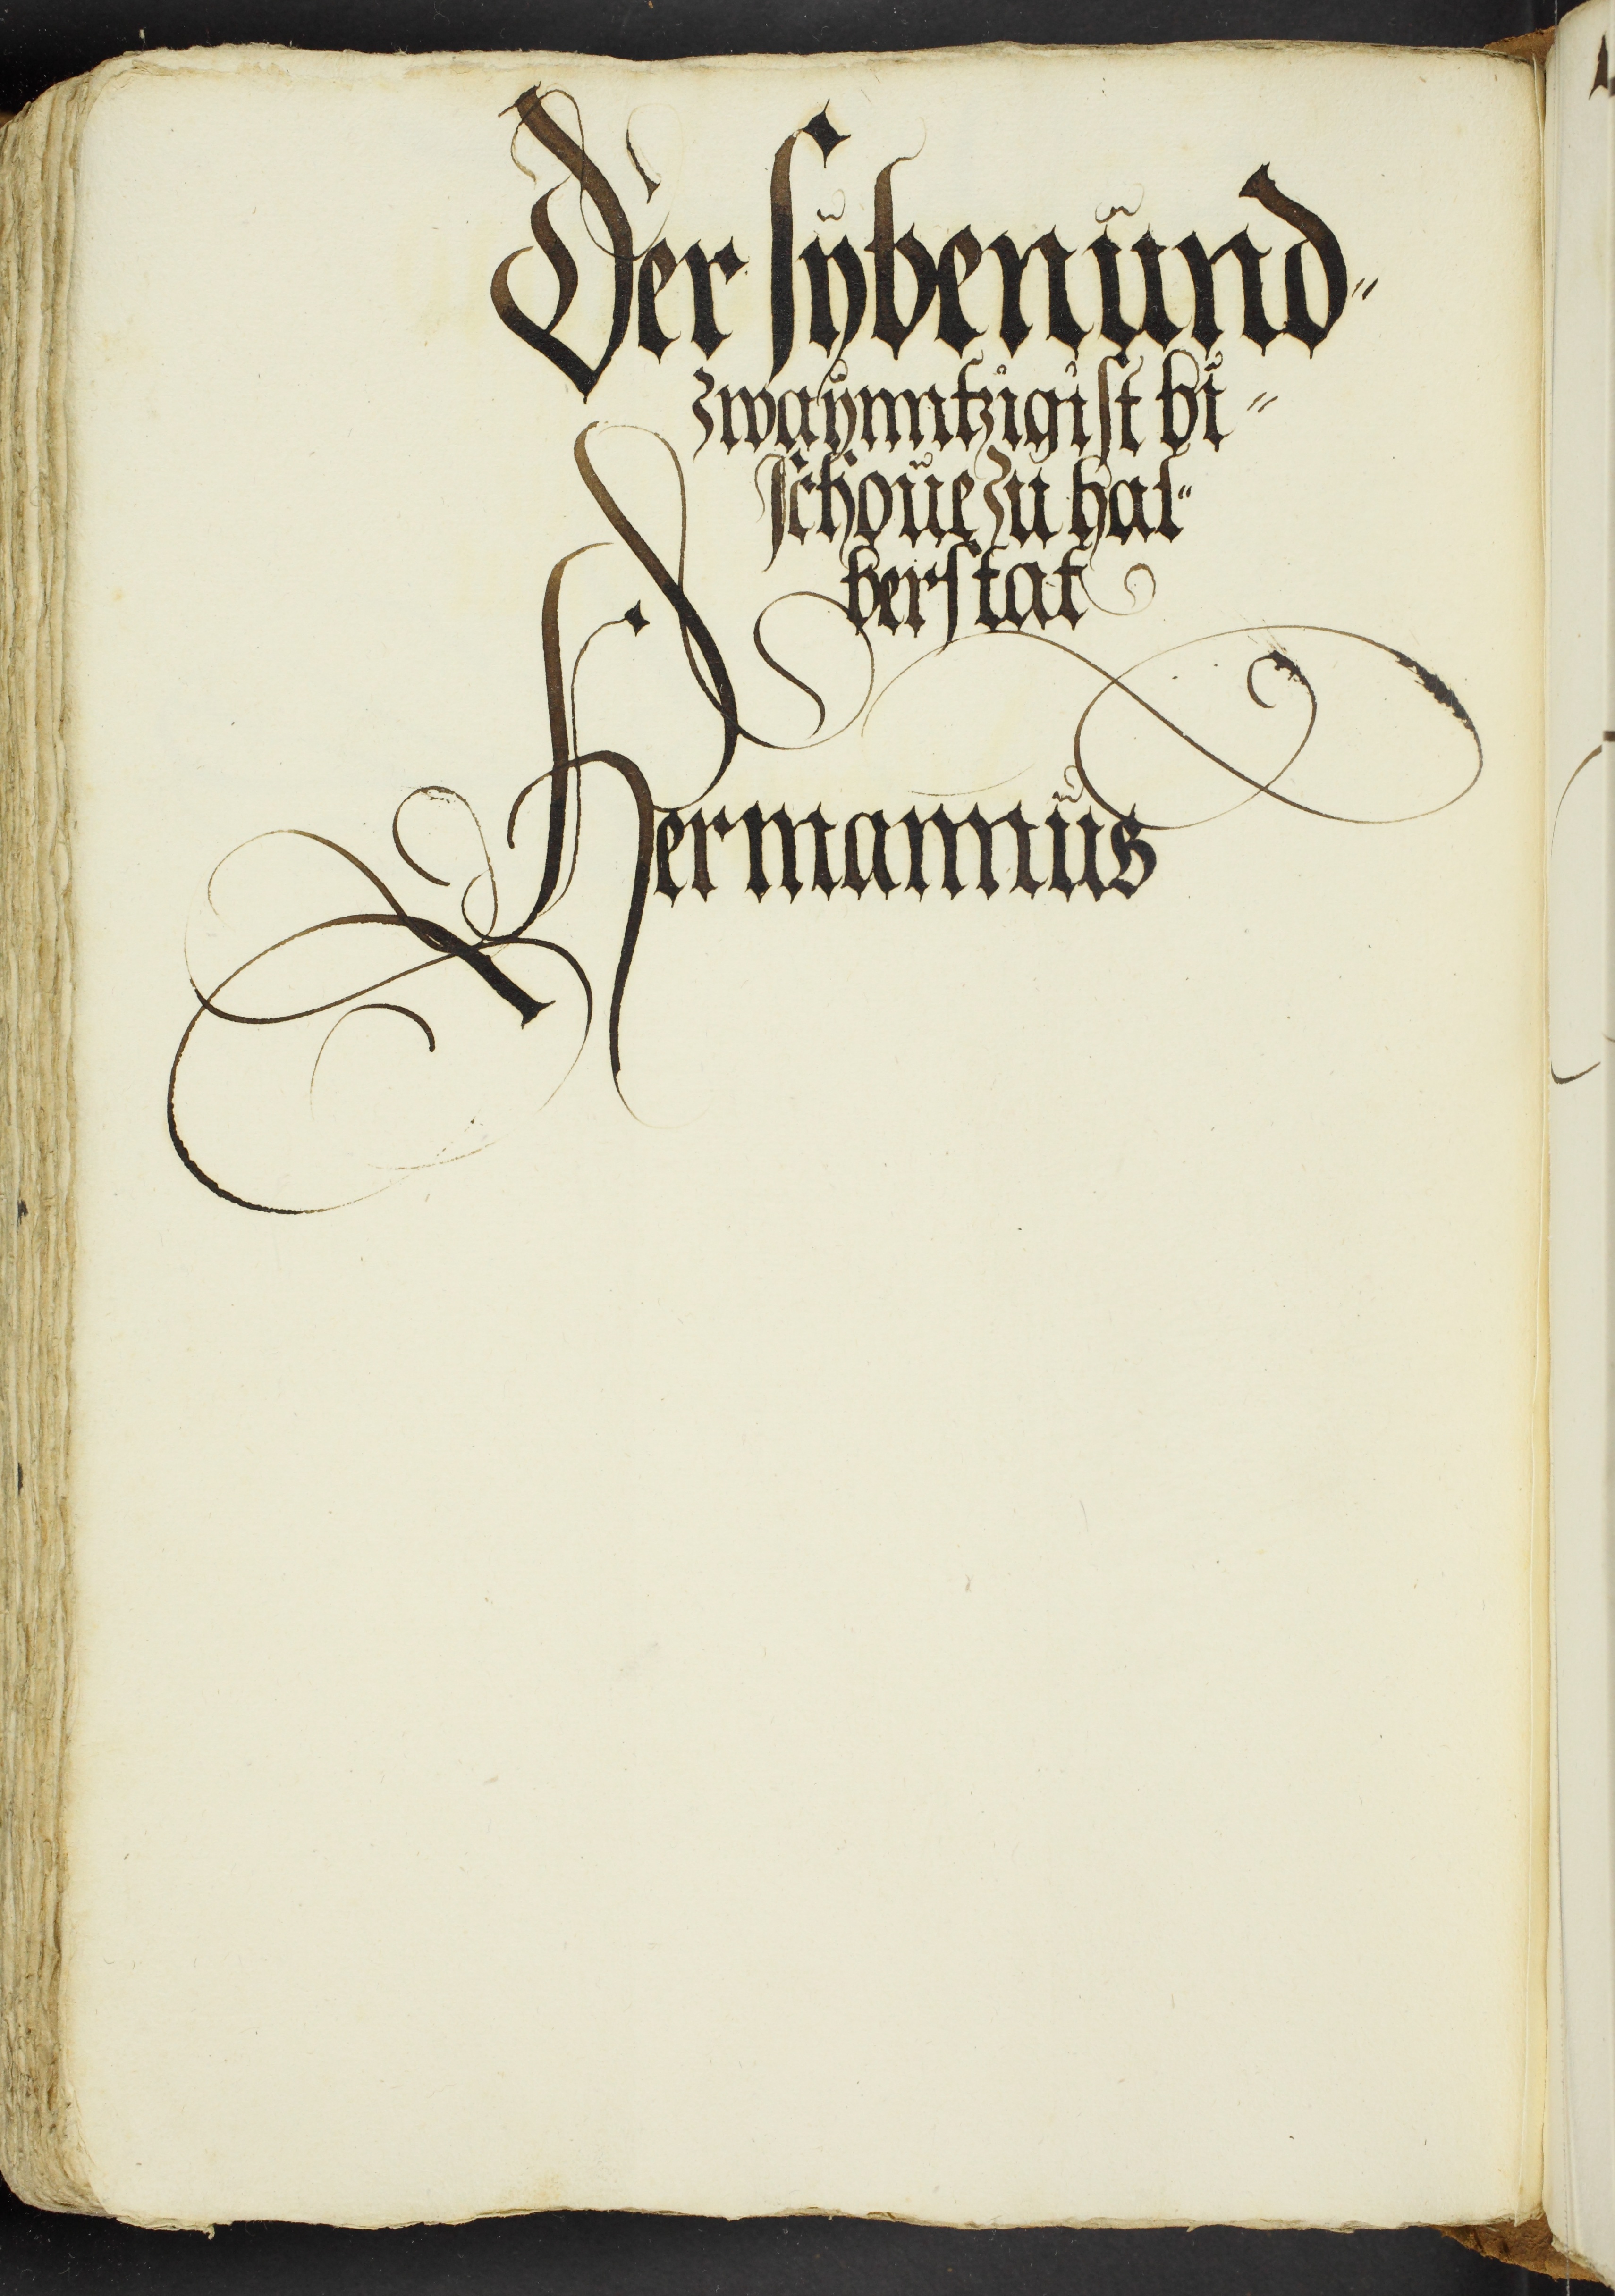 Der sÿbenund-
zwaÿnntzigist bi-
schoue zu hal-
berstat
Hermannus